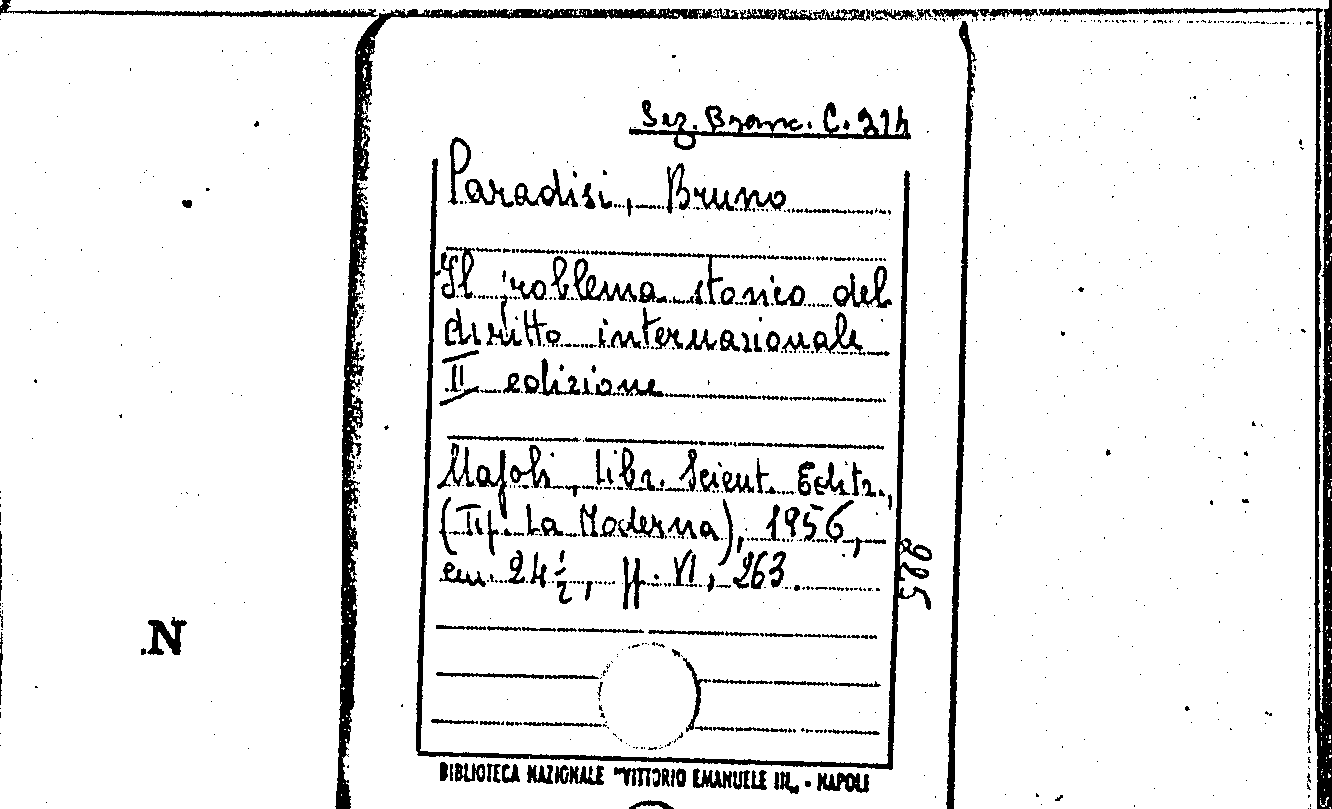 Sez. Branc. C. 214
Paradisi, Bruno
Il problema storico del
diritto internazionale
II edizione
Napoli, Libr. Scient. Editr.,
(Tip. La Moderna), 1956,
cm. 24 1/2, pp. VI, 263.
985
.N
BIBLIOTECA NAZIONALE "VITTORIO EMANUELE III„ - NAPOLI